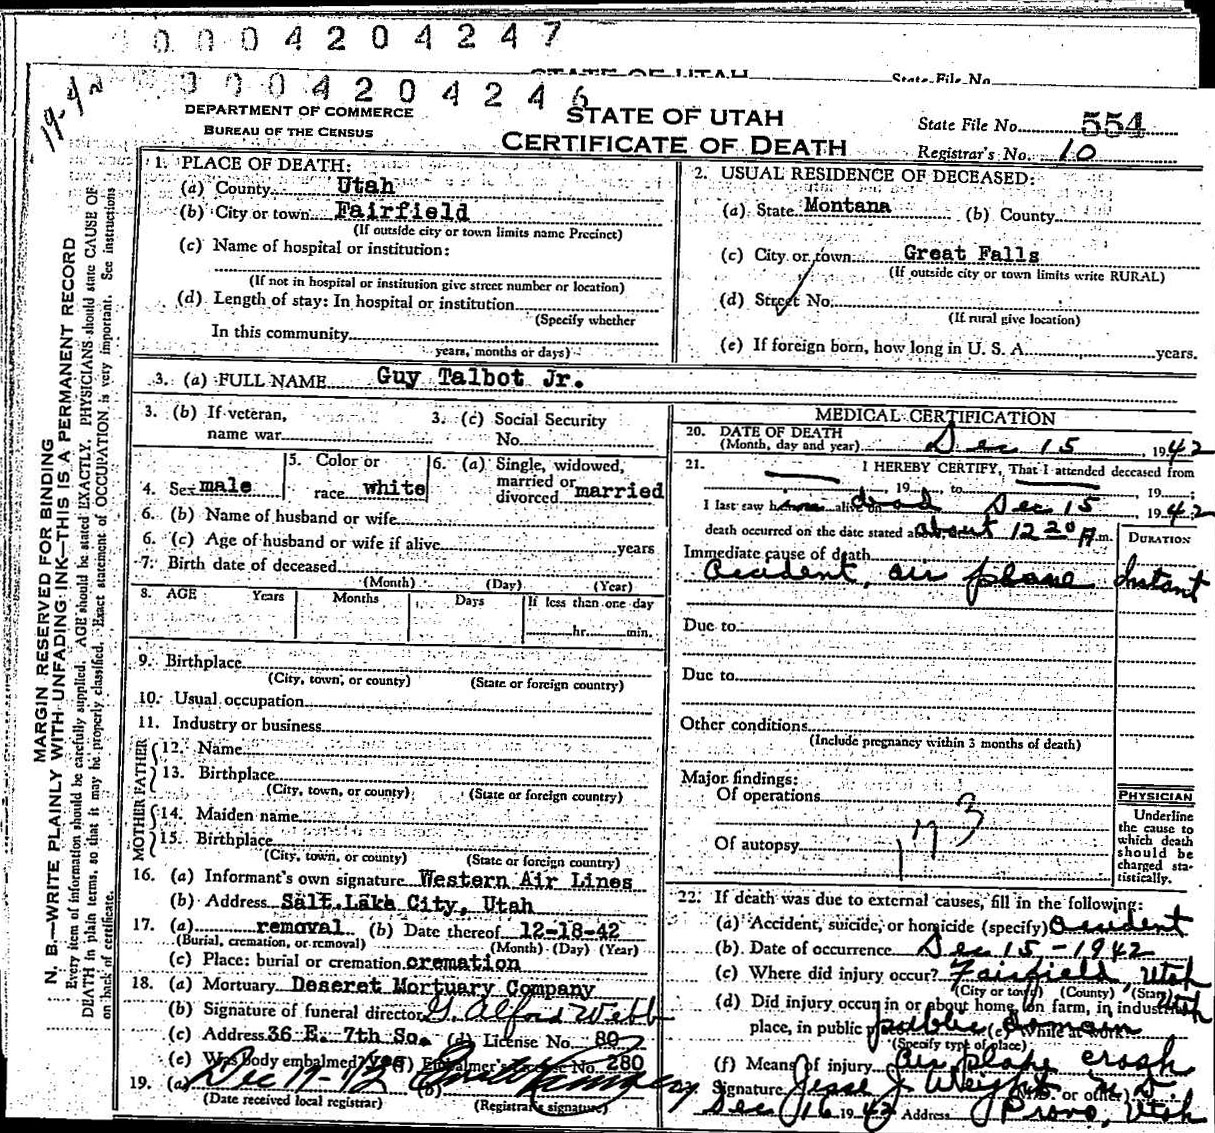 0 0 0 4 2 0 4 2 4 7
STATE OF UTAH
State File No.
19-9
0 0 0 4 2 0 4 2 4 6
DEPARTMENT OF COMMERCE
BUREAU OF THE CENSUS
STATE OF UTAH
CERTIFICATE OF DEATH
State File No. 554
Registrar's No. 10
MARGIN RESERVED FOR BINDING
N. B.—WRITE PLAINLY WITH UNFADING INK—THIS IS A PERMANENT RECORD
Every item of information should be carefully supplied. AGE should be stated EXACTLY. PHYSICIANS should state CAUSE OF
DEATH in plain terms, so that it may be properly classified. Exact statement of OCCUPATION is very important. See instructions
on back of certificate.
1. PLACE OF DEATH:
(a) County Utah
(b) City or town Fairfield
(If outside city or town limits name Precinct)
(c) Name of hospital or institution:
(If not in hospital or institution give street number or location)
(d) Length of stay: In hospital or institution
(Specify whether
In this community
years, months or days)
2. USUAL RESIDENCE OF DECEASED:
(a) State Montana (b) County
(c) City or town Great Falls
(If outside city or town limits write RURAL)
(d) Street No.
(If rural give location)
(e) If foreign born, how long in U. S. A. years.
3. (a) FULL NAME Guy Talbot Jr.
3. (b) If veteran,
name war
3. (c) Social Security
No.
4. Sex male
5. Color or
race white
6. (a) Single, widowed,
married or
divorced married
6. (b) Name of husband or wife
6. (c) Age of husband or wife if alive years
7. Birth date of deceased
(Month) (Day) (Year)
8. AGE Years Months Days If less than one day
hr. min.
9. Birthplace
(City, town, or county) (State or foreign country)
10. Usual occupation
11. Industry or business
FATHER
12. Name
13. Birthplace
(City, town, or county) (State or foreign country)
MOTHER
14. Maiden name
15. Birthplace
(City, town, or county) (State or foreign country)
16. (a) Informant's own signature Western Air Lines
(b) Address Salt Lake City, Utah
17. (a) removal (b) Date thereof 12-18-42
(Burial, cremation, or removal) (Month) (Day) (Year)
(c) Place: burial or cremation cremation
18. (a) Mortuary Deseret Mortuary Company
(b) Signature of funeral director G. Alford Webb
(c) Address 36 E. 7th So. (d) License No. 80
(e) Was Body embalmed? yes (f) Embalmer's License No. 280
19. (a) Dec 17-42 (b)
(Date received local registrar) (Registrar's signature)
MEDICAL CERTIFICATION
20. DATE OF DEATH
(Month, day and year) Dec 15, 1942
21. I HEREBY CERTIFY, That I attended deceased from
, 19 , to , 19 ;
I last saw him alive on dead Dec 15, 1942
death occurred on the date stated above, at about 12 20 A m.
DURATION
Immediate cause of death
accident, air plane Instant
Due to
Due to
Other conditions
(Include pregnancy within 3 months of death)
Major findings:
Of operations
Of autopsy
173
PHYSICIAN
Underline
the cause to
which death
should be
charged sta-
tistically.
22. If death was due to external causes, fill in the following:
(a) Accident, suicide, or homicide (specify) accident
(b) Date of occurrence Dec 15-1942
(c) Where did injury occur? Fairfield, Utah
(City or town) (County) (State)
(d) Did injury occur in or about home, on farm, in industrial
Utah
place, in public place? public domain (e) While at work?
(Specify type of place)
(f) Means of injury Air plane crash
Signature Jesse J. Weight M.D.
(M.D. or other)
Dec 16 1942 Address Provo, Utah